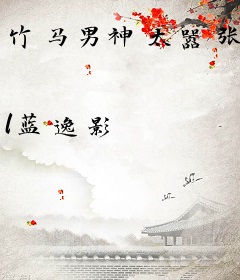 竹马男神太嚣张
/蓝逸影